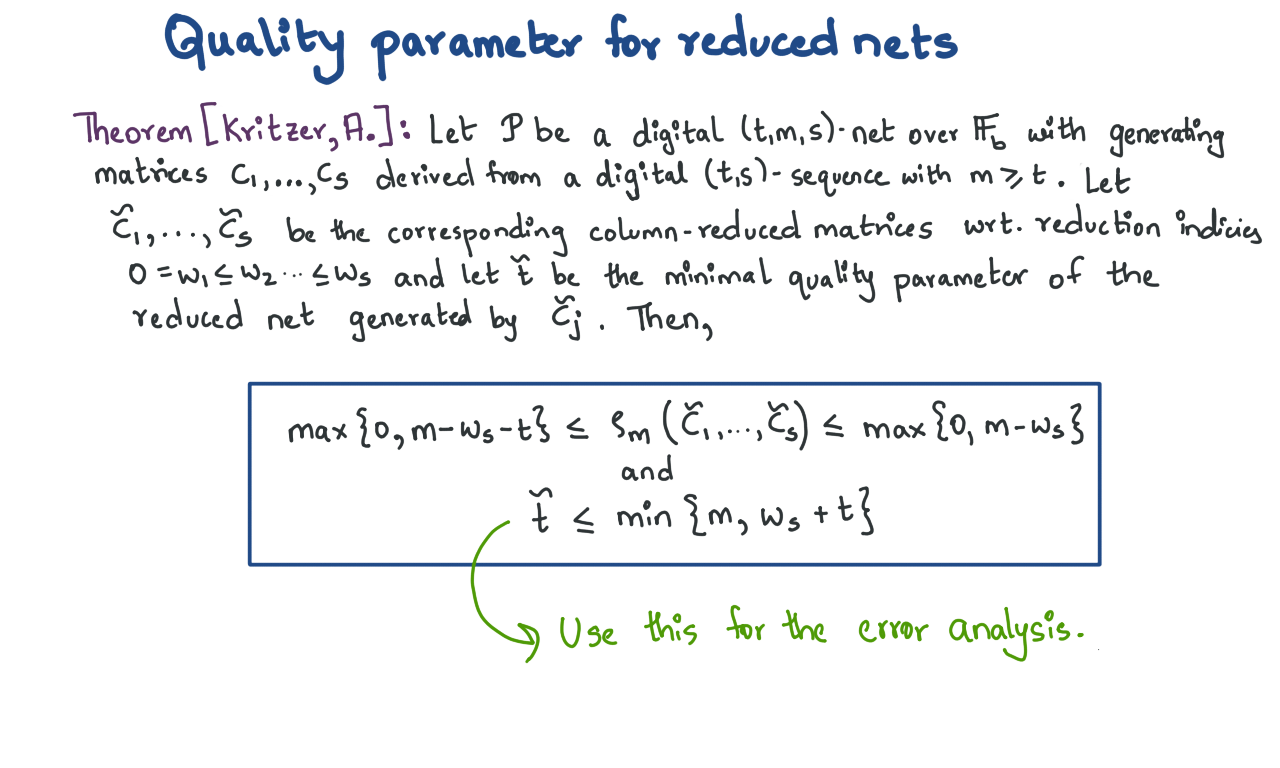 Quality parameter for reduced nets
Theorem [Kritzer, A.]: Let P be a digital (t,m,s)-net over 𝔽_b with generating
matrices C₁,...,Cs derived from a digital (t,s)-sequence with m ≥ t. Let
C̃₁,...,C̃s be the corresponding column-reduced matrices wrt. reduction indicies
0 = w₁ ≤ w₂ ... ≤ ws and let t̃ be the minimal quality parameter of the
reduced net generated by C̃j. Then,
max{0, m-ws-t} ≤ ρm (C̃₁,...,C̃s) ≤ max{0, m-ws}
and
t̃ ≤ min {m, ws + t}
Use this for the error analysis.